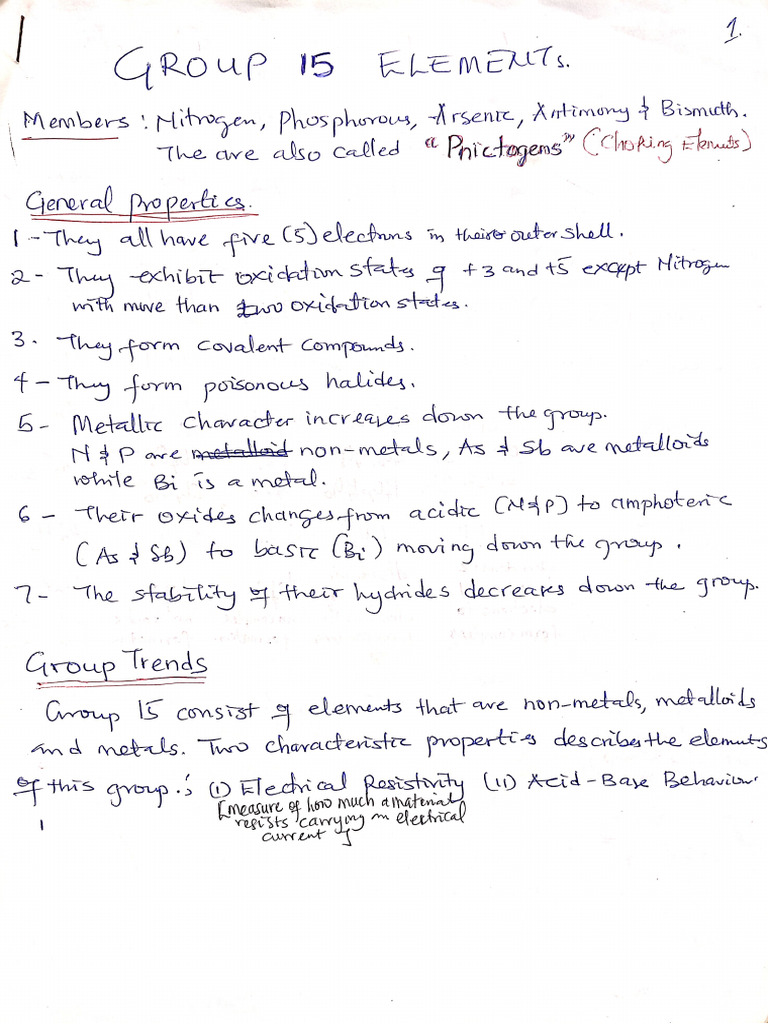 1.
GROUP 15 ELEMENTS.
Members : Nitrogen, Phosphorous, Arsenic, Antimony & Bismuth.
The are also called "Pnictogens" (Choking Elements)
General properties.
1 - They all have five (5) electrons in their outer shell.
2 - They exhibit oxidation states of +3 and +5 except Nitrogen
with more than two oxidation states.
3. They form covalent compounds.
4 - They form poisonous halides.
5 - Metallic character increases down the group.
N & P are metalloid non-metals, As & Sb are metalloids
while Bi is a metal.
6 - Their oxides changes from acidic (N & P) to amphoteric
(As & Sb) to basic (Bi) moving down the group.
7 - The stability of their hydrides decreases down the group.
Group Trends
Group 15 consist of elements that are non-metals, metalloids
and metals. Two characteristic properties describes the elements
of this group : (i) Electrical Resistivity (ii) Acid-Base Behaviour
[measure of how much a material
resists carrying an electrical
current]